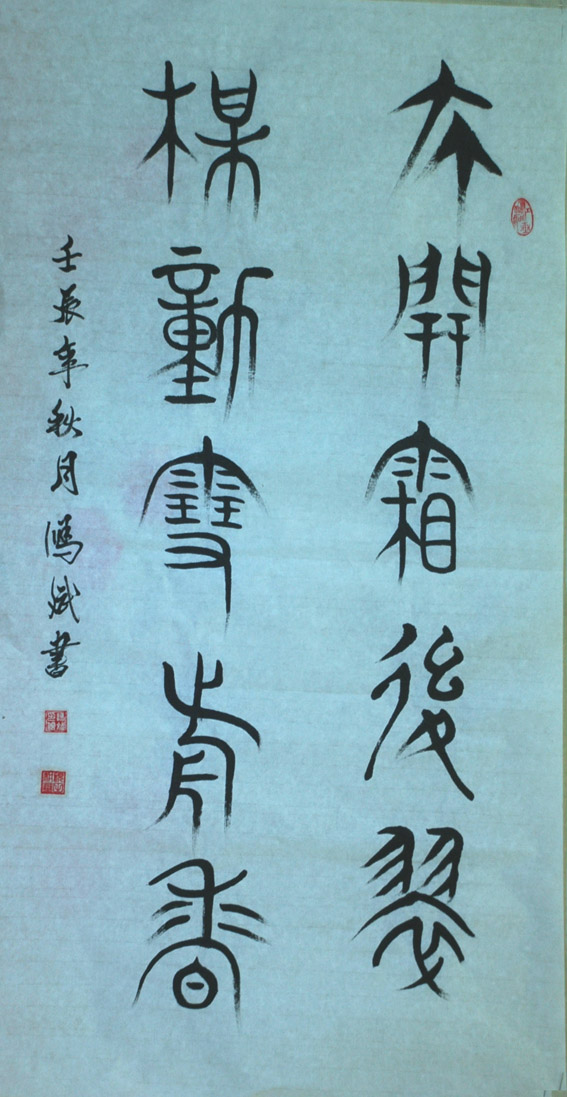 竹開霜後翠
楳動雪前香
壬辰年秋月鴻斌書